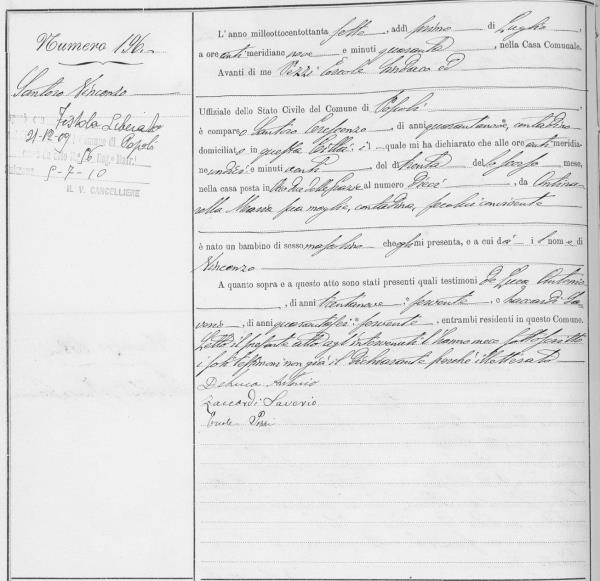 Numero 196
Santoro Vincenzo
Festola Liberata
21-12-09 Popoli
N. 16 Reg. Matr.
8-7-10
IL V. CANCELLIERE
L'anno milleottocentottanta sette, addì primo di Luglio,
a ore antimeridiane nove e minuti quaranta, nella Casa Comunale.
Avanti di me Pezzi Ercole Sindaco ed
Uffiziale dello Stato Civile del Comune di Popoli
è comparso Santoro Crescenzo, di anni quarantanove, contadino
domiciliato in questa Città, il quale mi ha dichiarato che alle ore antimeridia-
ne undici e minuti venti, del dì trenta dello scorso mese,
nella casa posta in Strada delle al numero dieci, da
rolla Maria sua moglie, contadina, seco lui convivente
è nato un bambino di sesso mascolino che egli mi presenta, e a cui dà il nome di
Vincenzo
A quanto sopra e a questo atto sono stati presenti quali testimoni de Luca Antonio
, di anni trentanove, servente, e Zaccardi Sa-
verio, di anni quarantasei, servente, entrambi residenti in questo Comune.
Letto il presente atto agl'intervenuti l'hanno meco sottoscritto
i soli testimoni non già il dichiarante perchè illetterato
Deluca Antonio
Zaccardi Saverio
Ercole Pezzi